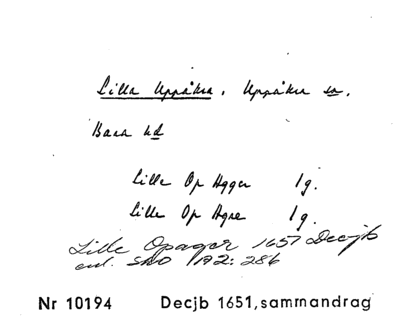 Lilla Uppåkra, Uppåkra sn,
Bara hd
Lille Op Agger 1 g.
Lille Op Agre 1 g.
Lille Opager 1657 Decjb
enl. SkO A2: 286
Nr 10194 Decjb 1651, sammandrag